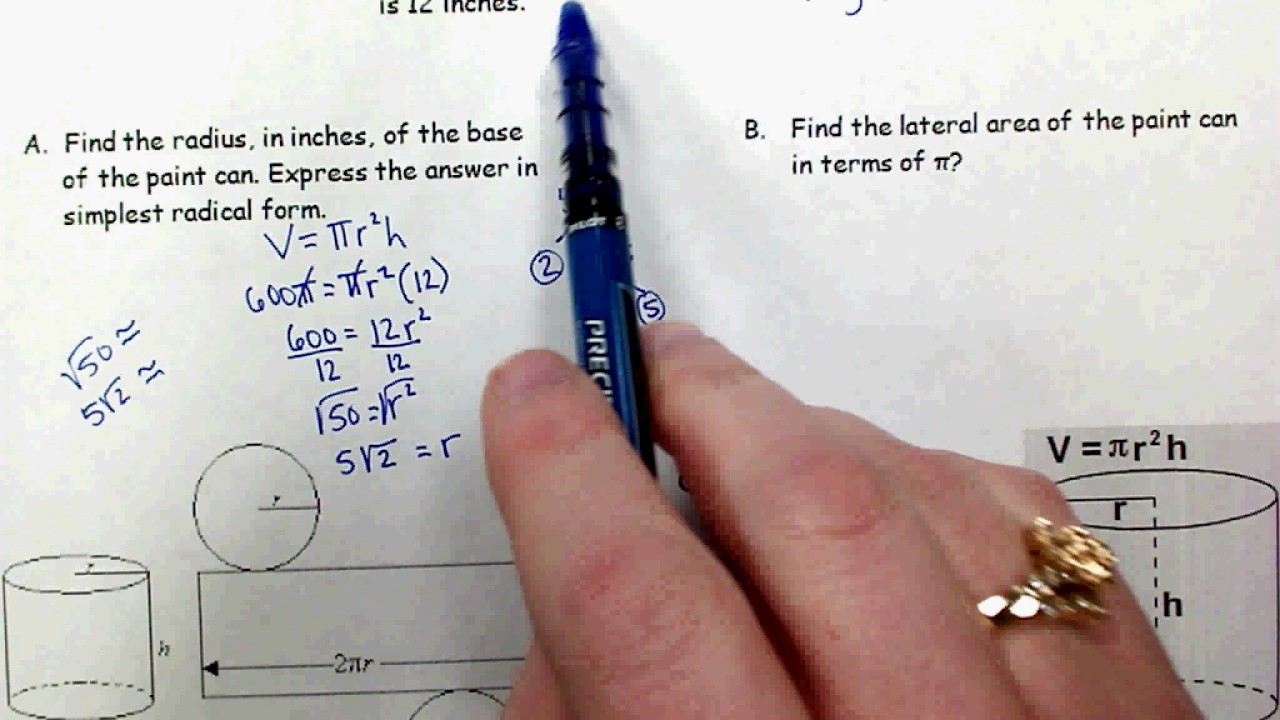 is 12 inches.
A. Find the radius, in inches, of the base
of the paint can. Express the answer in
simplest radical form.
V = πr²h
600π = πr²(12)
600 = 12r²
12 12
√50 = √r²
5√2 = r
√50 ≈
5√2 ≈
②
⑤
PRECI
B. Find the lateral area of the paint can
in terms of π?
r
h
r
2πr
V = πr²h
r
h